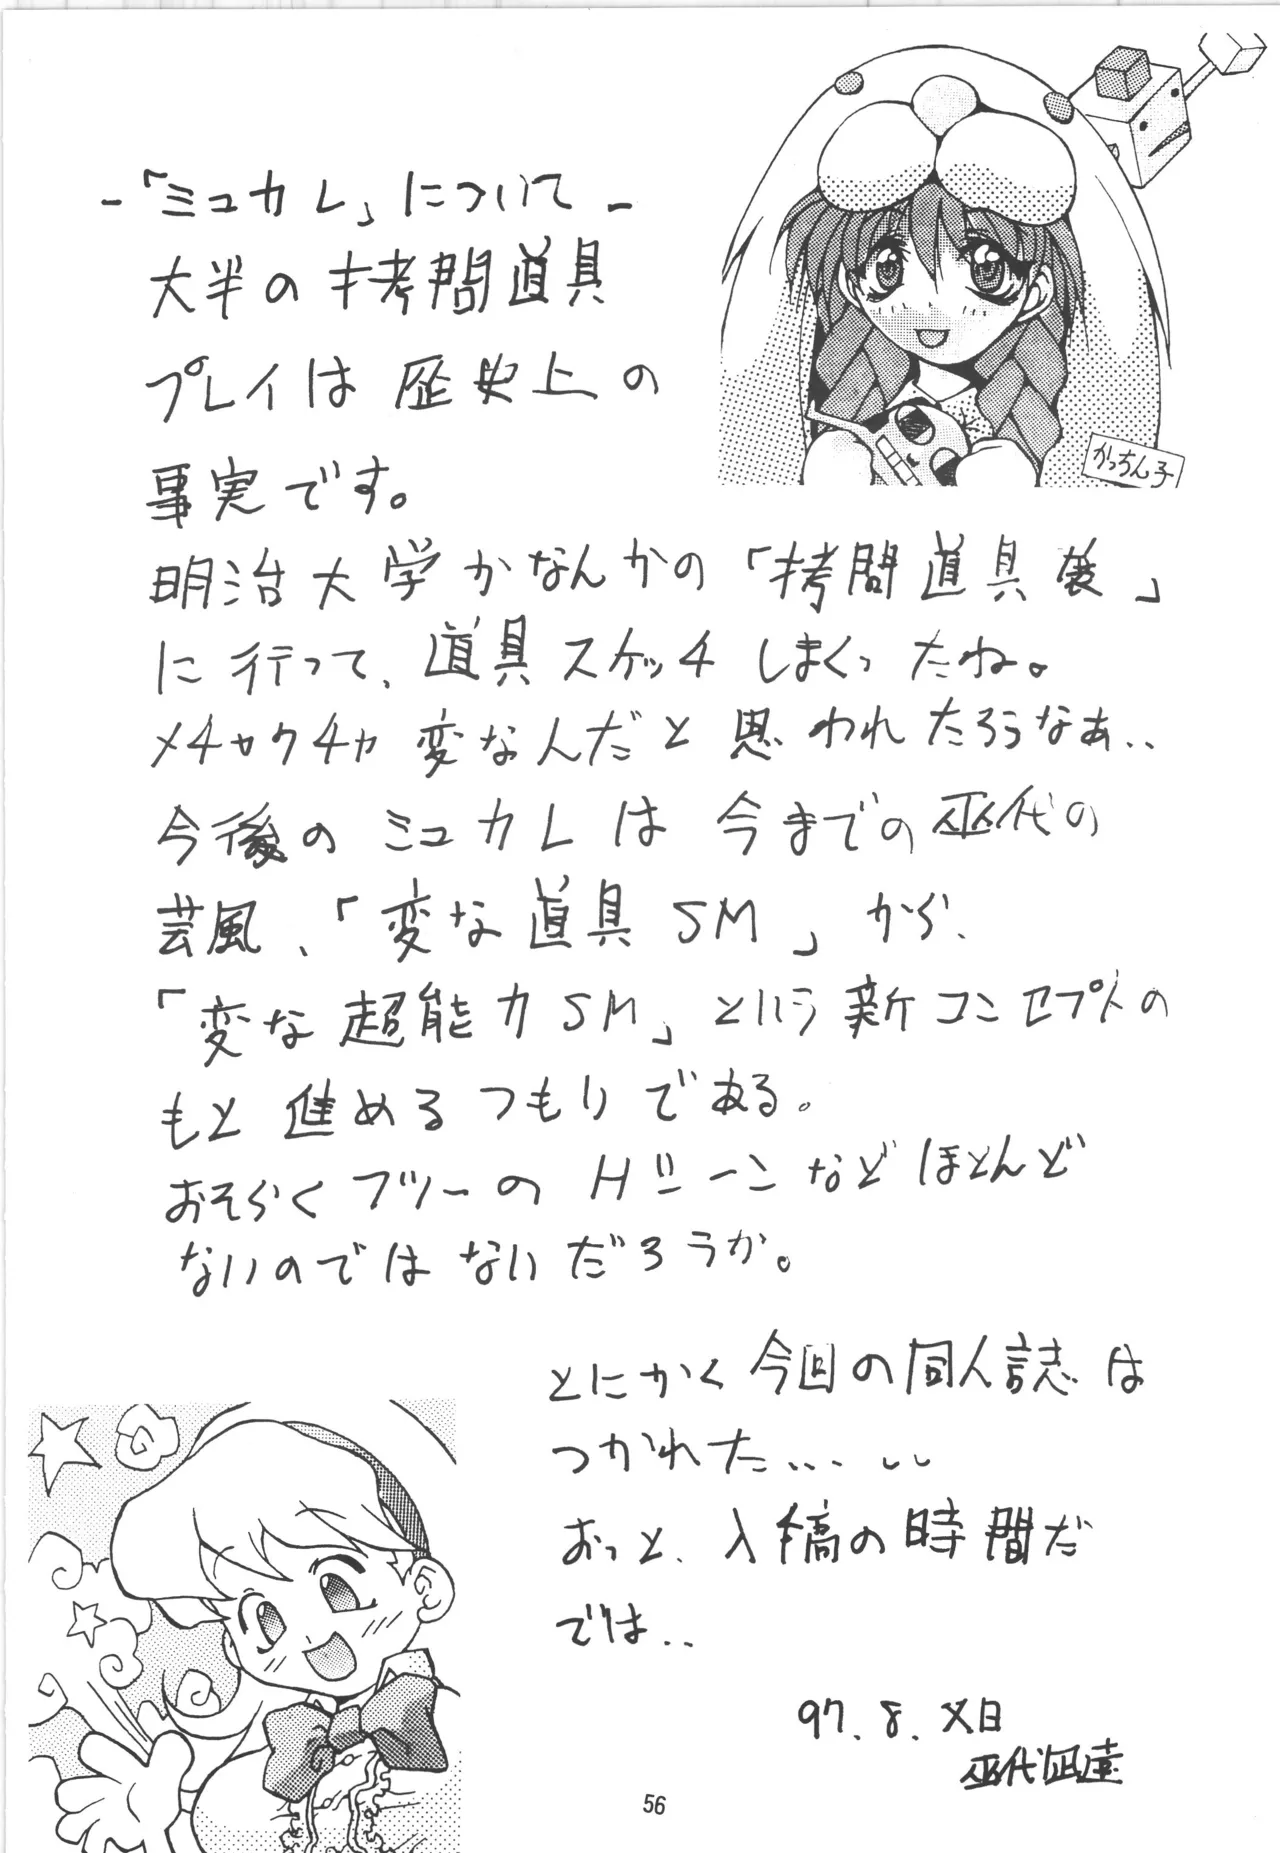 -「ミュカレ」について-
大半の拷問道具
プレイは歴史上の
事実です。
かっちん子
明治大学かなんかの「拷問道具展」
に行って、道具スケッチしまくったね。
メチャクチャ変なんだと思われたろうなぁ..
今後のミュカレは今までの巫代の
芸風、「変な道具SM」から、
「変な超能力SM」という新コンセプトの
もと進めるつもりである。
おそらくフツーのHシーンなどほとんど
ないのではないだろうか。
とにかく今回の同人誌は
つかれた......
おっと、入稿の時間だ
では..
97.8.X日
巫代凪遠
56